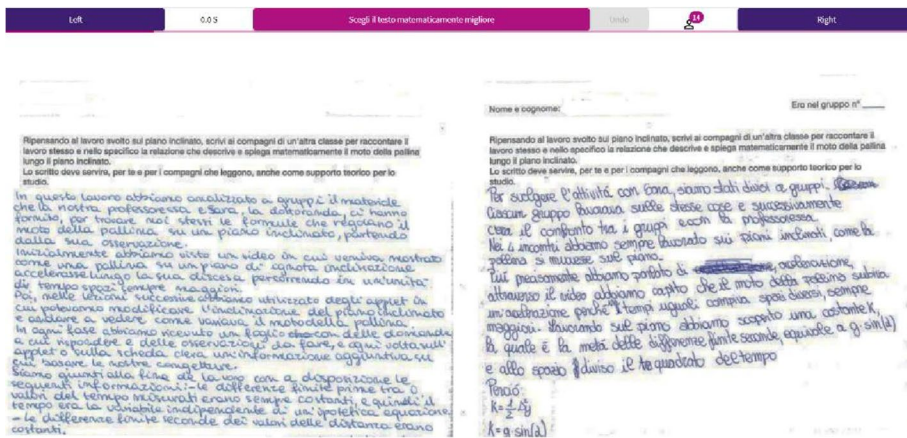 Left
0.0 S
Scegli il testo matematicamente migliore
Undo
14
Right
Ripensando al lavoro svolto sul piano inclinato, scrivi ai compagni di un'altra classe per raccontare il
lavoro stesso e nello specifico la relazione che descrive e spiega matematicamente il moto della pallina
lungo il piano inclinato.
Lo scritto deve servire, per te e per i compagni che leggono, anche come supporto teorico per lo
studio.
In questo lavoro abbiamo analizzato a gruppi il materiale
che la nostra professoressa e Sara, la dottoranda, ci hanno
fornito, per trovare noi stessi le formule che regolano il
moto della pallina su un piano inclinato, partendo
dalla sua osservazione.
Inizialmente abbiamo visto un video in cui veniva mostrato
come una pallina su un piano di agnota inclinazione
accelerasse lungo la sua discesa, percorrendo in un'unita'
di tempo spazi sempre maggiori.
Poi, nelle lezioni successive abbiamo utilizzato degli applet in
cui potevamo modificare l'inclinazione del piano inclinato
e andare a vedere come variava il moto della pallina.
In ogni fase abbiamo ricevuto un foglio con delle domande
a cui rispondere e delle osservazioni da fare, e ogni volta sull'
applet o sulla scheda c'era un'informazione aggiuntiva su
cui basare le nostre congetture.
Siamo giunti alla fine di lavoro con a disposizione le
seguenti informazioni: - le differenze finite prime tra i
valori del tempo misurati erano sempre costanti, e quindi il
tempo era la variabile indipendente di un'ipotetica equazione
- le differenze finite seconde dei valori delle distanza erano
costanti.
Nome e cognome:
Ero nel gruppo n° ____
Ripensando al lavoro svolto sul piano inclinato, scrivi ai compagni di un'altra classe per raccontare il
lavoro stesso e nello specifico la relazione che descrive e spiega matematicamente il moto della pallina
lungo il piano inclinato.
Lo scritto deve servire, per te e per i compagni che leggono, anche come supporto teorico per lo
studio.
Per svolgere l'attività con Sara, siamo stati divisi a gruppi.
Ciascun gruppo lavorava sulle stesse cose e successivamente
c'era il confronto tra i gruppi e con la professoressa.
Nei 4 incontri abbiamo sempre lavorato sui piani inclinati, come la
pallina si muovesse sul piano.
Più precisamente abbiamo parlato di accelerazione,
attraverso il video abbiamo capito che il moto della pallina subiva
un'accelerazione perché in tempi uguali compiva spazi diversi, sempre
maggiori. Lavorando sul piano abbiamo scoperto una costante k,
la quale è la metà delle differenze finite seconde, equivale a g·sin(α)
e allo spazio diviso il quadrato del tempo
Perciò:
k = 1/2 Δ²y
k = g·sin(α)